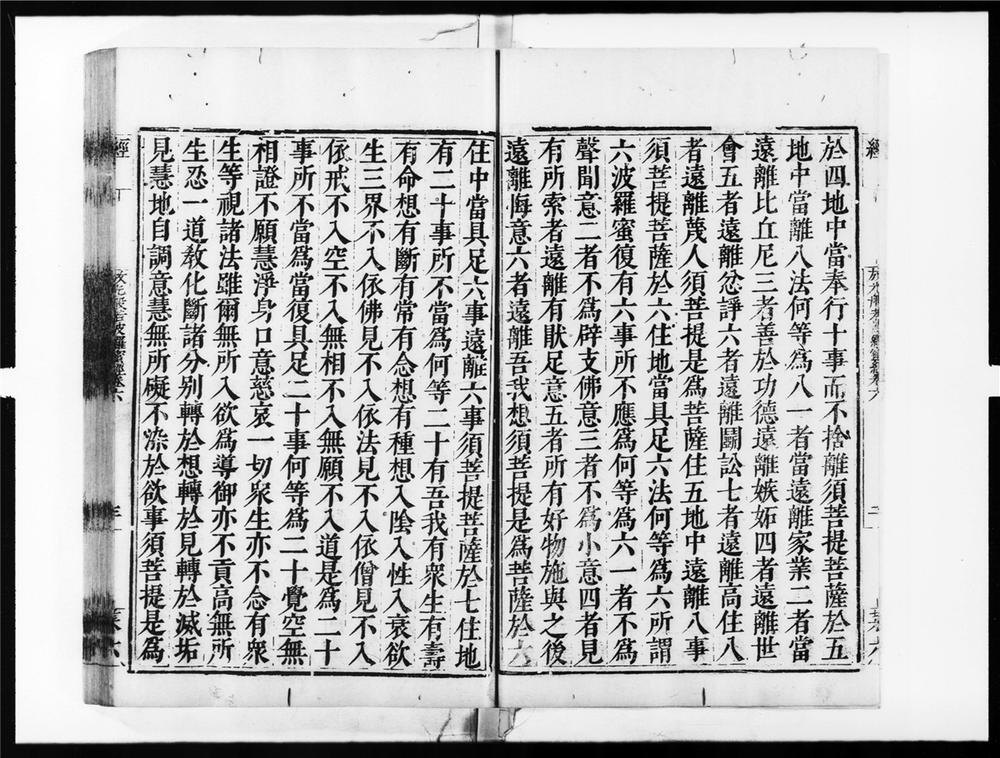 於四地中當奉行十事而不捨離須菩提菩薩於五
地中當離八法何等為八一者當遠離家業二者當
遠離比丘尼三者善於功德遠離嫉妬四者遠離世
會五者遠離忿諍六者遠離鬪訟七者遠離高住八
者遠離蔑人須菩提是為菩薩住五地中遠離八事
須菩提菩薩於六住地當具足六法何等為六所謂
六波羅蜜復有六事所不應為何等為六一者不為
聲聞意二者不為辟支佛意三者不為小意四者見
有所索者遠離有猒足意五者所有好物施與之後
遠離悔意六者遠離吾我想須菩提是為菩薩於六
住中當具足六事遠離六事須菩提菩薩於七住地
有二十事所不當為何等二十有吾我有衆生有壽
有命想有斷有常有念想有種想入陰入性入衰欲
生三界不入依佛見不入依法見不入依僧見不入
依戒不入空不入無相不入無願不入道是為二十
事所不當為當復具足二十事何等為二十覺空無
相證不願慧淨身口意慈哀一切衆生亦不念有衆
生等視諸法雖爾無所入欲為導御亦不貢高無所
生忍一道教化斷諸分别轉於想轉於見轉於滅垢
見慧地自調意慧無所礙不染於欲事須菩提是為